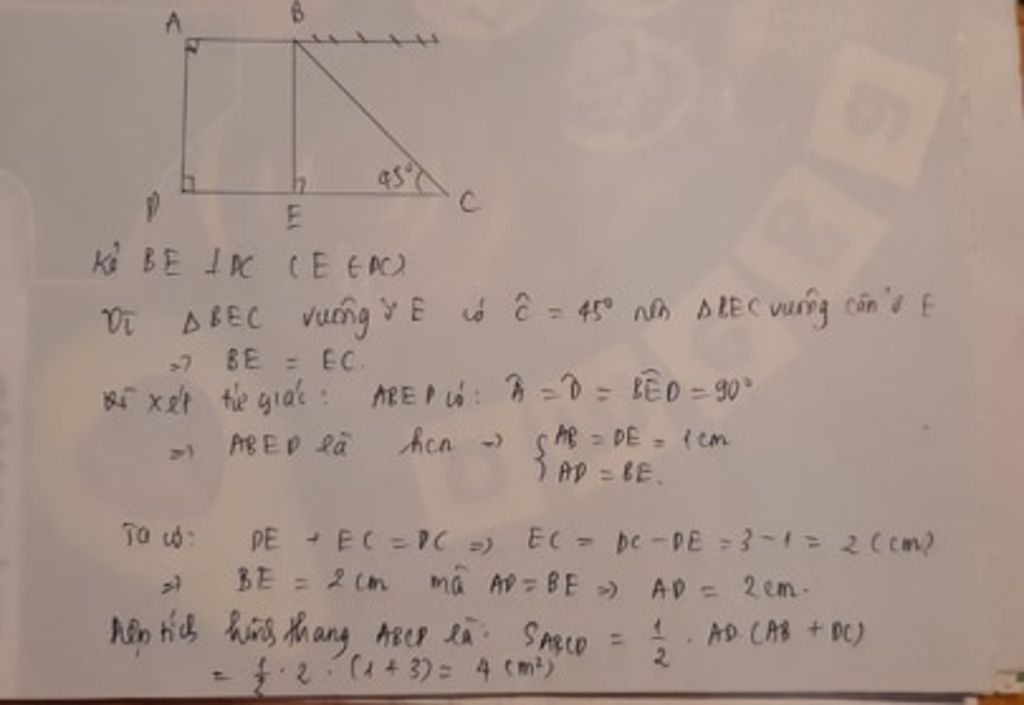 A B
45°
D E C
Kẻ BE ⊥ DC (E ∈ DC)
Vì ΔBEC vuông ở E có Ĉ = 45° nên ΔBEC vuông cân ở E
=> BE = EC.
xét tứ giác: ABED có: Â = D̂ = BÊD = 90°
=> ABED là hcn => { AB = DE = 1cm
AD = BE.
Ta có: DE + EC = DC => EC = DC - DE = 3 - 1 = 2 (cm)
=> BE = 2cm mà AD = BE => AD = 2cm.
Diện tích hình thang ABCD là: S_ABCD = 1/2 . AD (AB + DC)
= 1/2 . 2 . (1 + 3) = 4 (cm²)